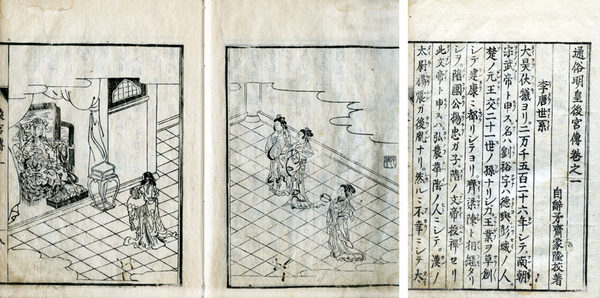 通俗明皇後宮傳卷之一
自辭矛齋蒙陸校著
李唐世系
大昊伏羲ヨリ、二万千五百二十六年ニシテ、南朝
宗武帝ト申ス、名ハ劉裕字ハ德輿彭城ノ人、
楚ノ元王交二十一世ノ孫ナリシガ王業ヲ草創
シテ建康ニ都リシテヨリ、齊梁陳ト相繼タリ
シヲ、隋國公楊忠ガ子、隋ノ文帝セリ
此文帝ト申スハ、弘農華陰ノ人ニシテ、漢ノ
太尉楊震ガ後胤ナリ、然ルニ不幸ニシテ大